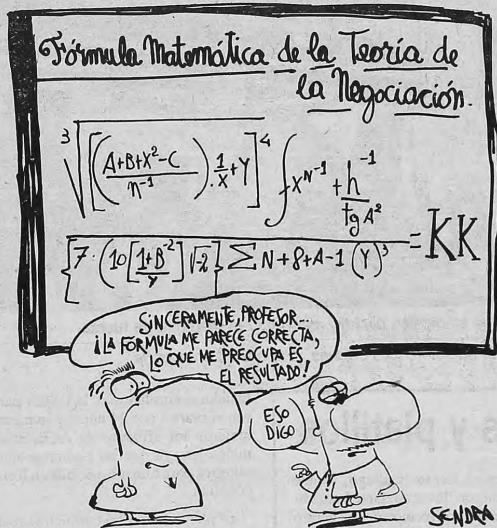 Fórmula Matemática de la Teoría de
la Negociación.
3√[((A+B+X²-C)/n⁻¹)·1/X+Y]⁴ ∫x^N-1 + h⁻¹/tg A²
{7·(10[1+B⁻²/Y]√-2} ∑ N+8+A-1 (Y)³
=KK
SINCERAMENTE, PROFESOR...
¡LA FORMULA ME PARECE CORRECTA,
LO QUE ME PREOCUPA ES
EL RESULTADO!
ESO
DIGO
SENDRA
s y platillos